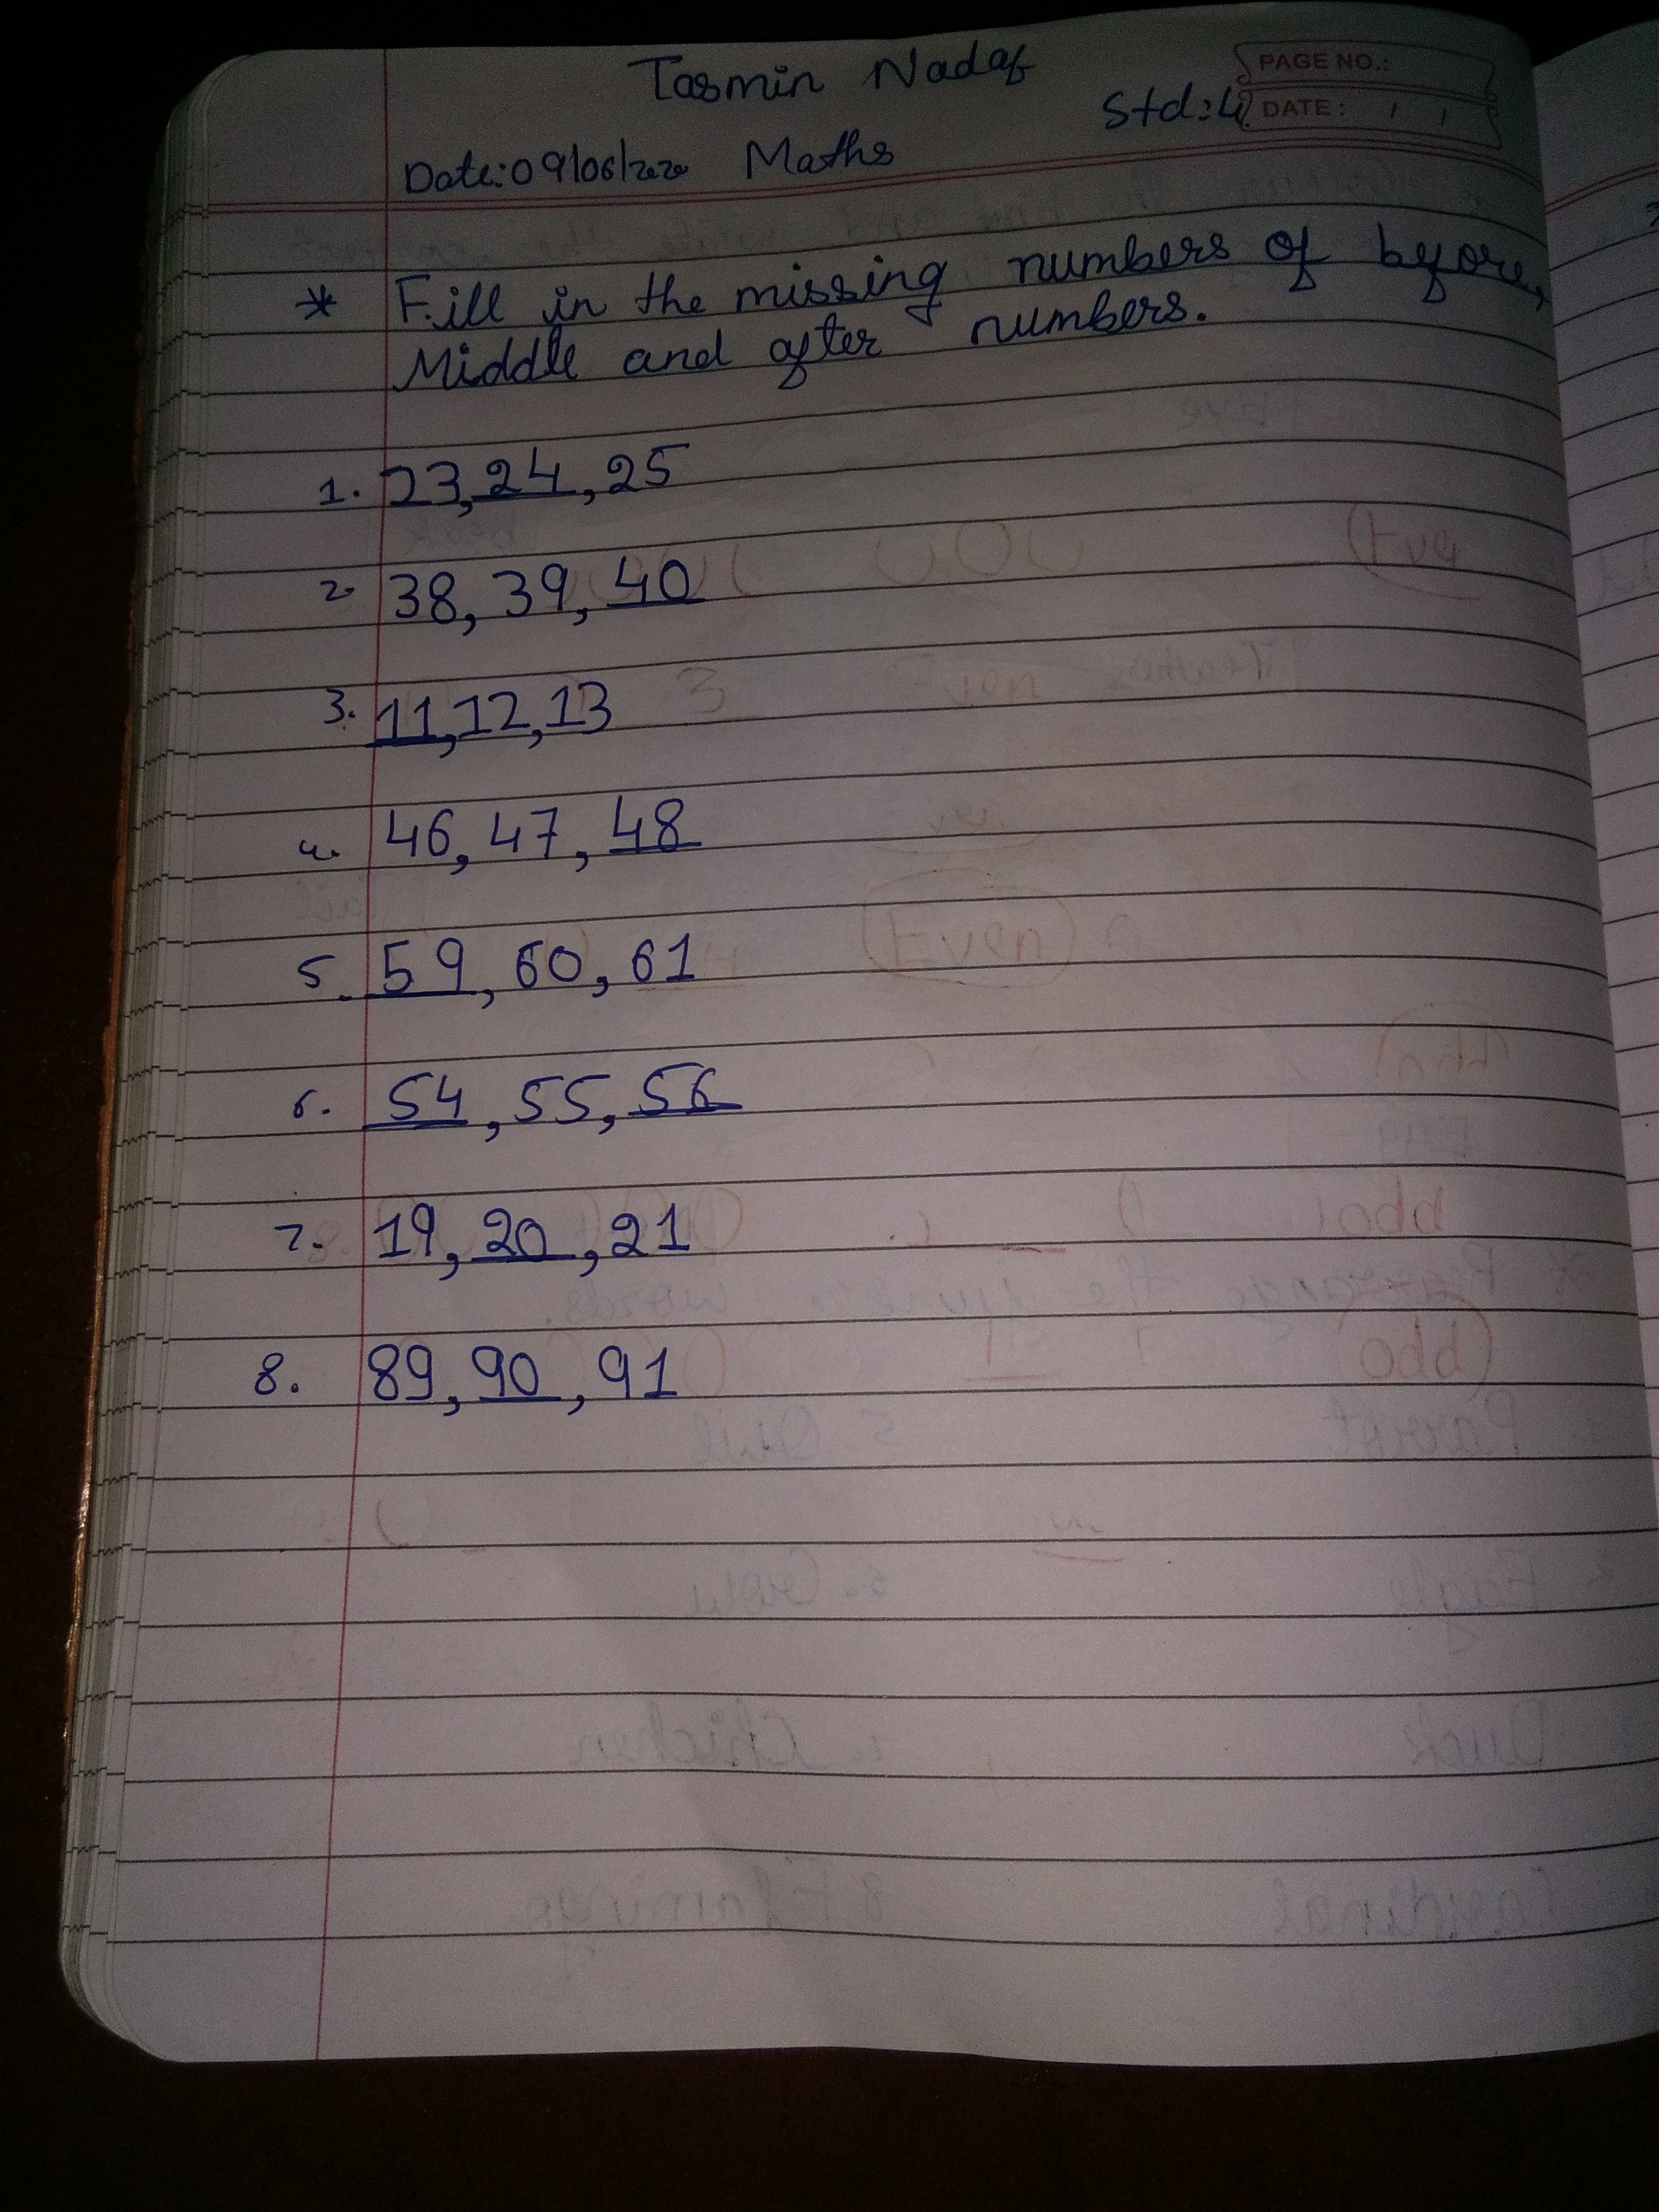 Tasmin Nadaf
PAGE NO.:
Std:4
DATE: / /
Date:09/06/2020 Maths
* Fill in the missing numbers of before,
Middle and after numbers.
1. 23, 24, 25
2. 38, 39, 40
3. 11, 12, 13
4. 46, 47, 48
5. 59, 60, 61
6. 54, 55, 56
7. 19, 20, 21
8. 89, 90, 91